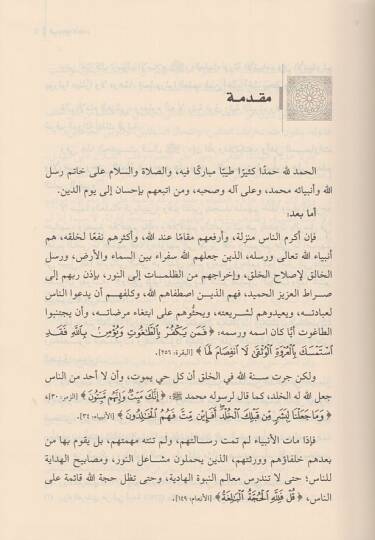 مقدمة
الحمد لله حمدًا كثيرًا طيبًا مباركًا فيه، والصلاة والسلام على خاتم رسل
الله وأنبيائه محمد، وعلى آله وصحبه، ومن اتبعهم بإحسان إلى يوم الدين.
أما بعد:
فإن أكرم الناس منزلة، وأرفعهم مقامًا عند الله، وأكثرهم نفعًا لخلقه، هم
أنبياء الله تعالى ورسله، الذين جعلهم الله سفراء بين السماء والأرض، ورسل
الخالق لإصلاح الخلق، وإخراجهم من الظلمات إلى النور، بإذن ربهم إلى
صراط العزيز الحميد، فهم الذين اصطفاهم الله، وكلفهم أن يدعوا الناس
لعبادته، ويعيدوهم لشريعته، ويحثُّوهم على ابتغاء مرضاته، وأن يجتنبوا
الطاغوت أيًّا كان اسمه ورسمه: ﴿فَمَن يَكْفُرْ بِالطَّاغُوتِ وَيُؤْمِنۢ بِاللَّهِ فَقَدِ
اسْتَمْسَكَ بِالْعُرْوَةِ الْوُثْقَىٰ لَا انفِصَامَ لَهَا﴾ [البقرة: ٢٥٦].
ولكن جرت سنة الله في الخلق أن كل حي يموت، وأن لا أحد من الناس
جعل الله له الخلد، كما قال لرسوله محمد ﷺ: ﴿إِنَّكَ مَيِّتٌ وَإِنَّهُم مَّيِّتُونَ﴾ [الزمر: ٣٠]،
﴿وَمَا جَعَلْنَا لِبَشَرٍ مِّن قَبْلِكَ الْخُلْدَ أَفَإِيْن مِّتَّ فَهُمُ الْخَالِدُونَ﴾ [الأنبياء: ٣٤].
فإذا مات الأنبياء لم تمت رسالتهم، ولم تنته مهمتهم، بل يقوم بها من
بعدهم خلفاؤهم وورثتهم، الذين يحملون مشاعل النور، ومصابيح الهداية
للناس؛ حتى لا تندرس معالم النبوة الهادية، وحتى تظل حجة الله قائمة على
الناس، ﴿قُلْ فَلِلَّهِ الْحُجَّةُ الْبَالِغَةُ﴾ [الأنعام: ١٤٩].